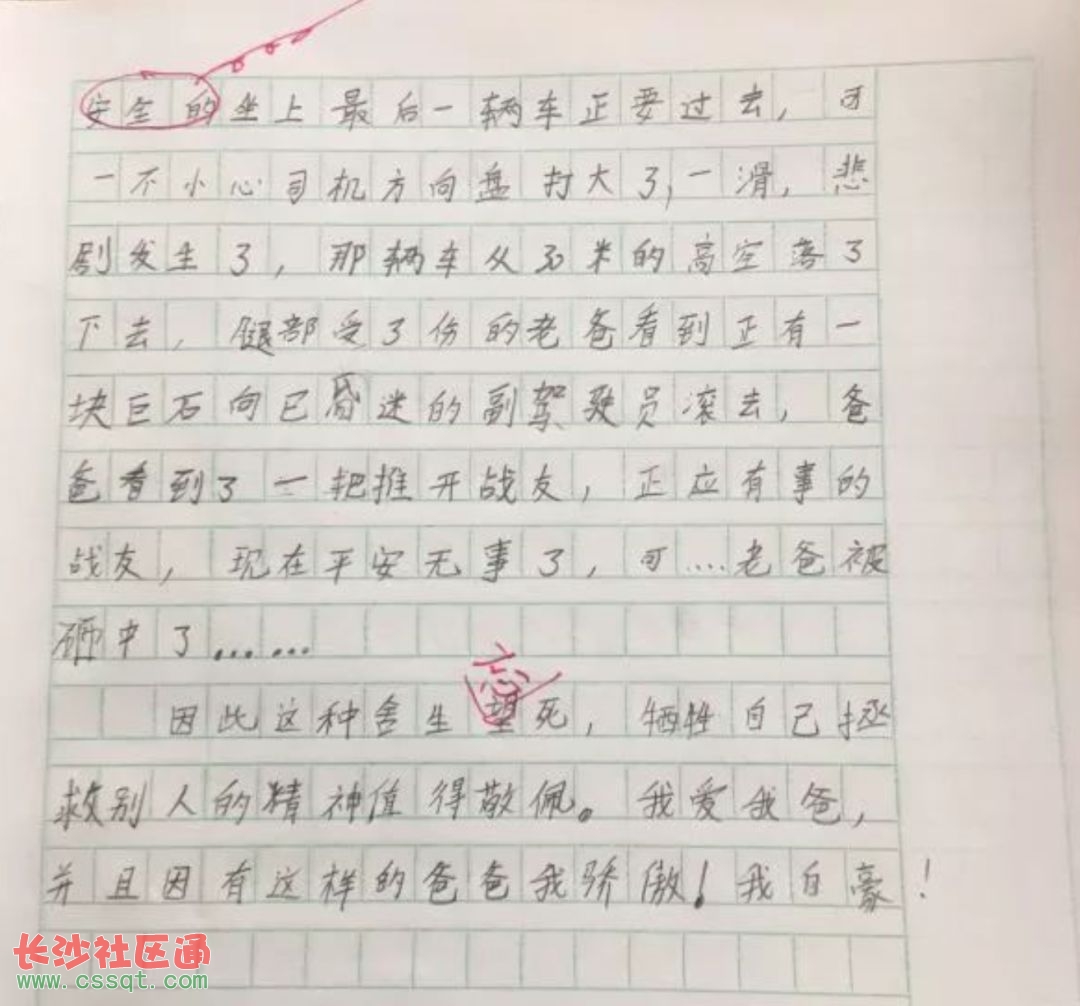 安全的坐上最后一辆车正要过去，可
一不小心司机方向盘打大了，一滑，悲
剧发生了，那辆车从30米的高空落了
下去，腿部受了伤的老爸看到正有一
块巨石向已昏迷的副驾驶员滚去，爸
爸看到了一把推开战友，正应有事的
战友，现在平安无事了，可....老爸被
砸中了......
忘
因此这种舍生望死，牺牲自己拯
救别人的精神值得敬佩。我爱我爸，
并且因有这样的爸爸我骄傲！我自豪！
长沙社区通
www.cssqt.com